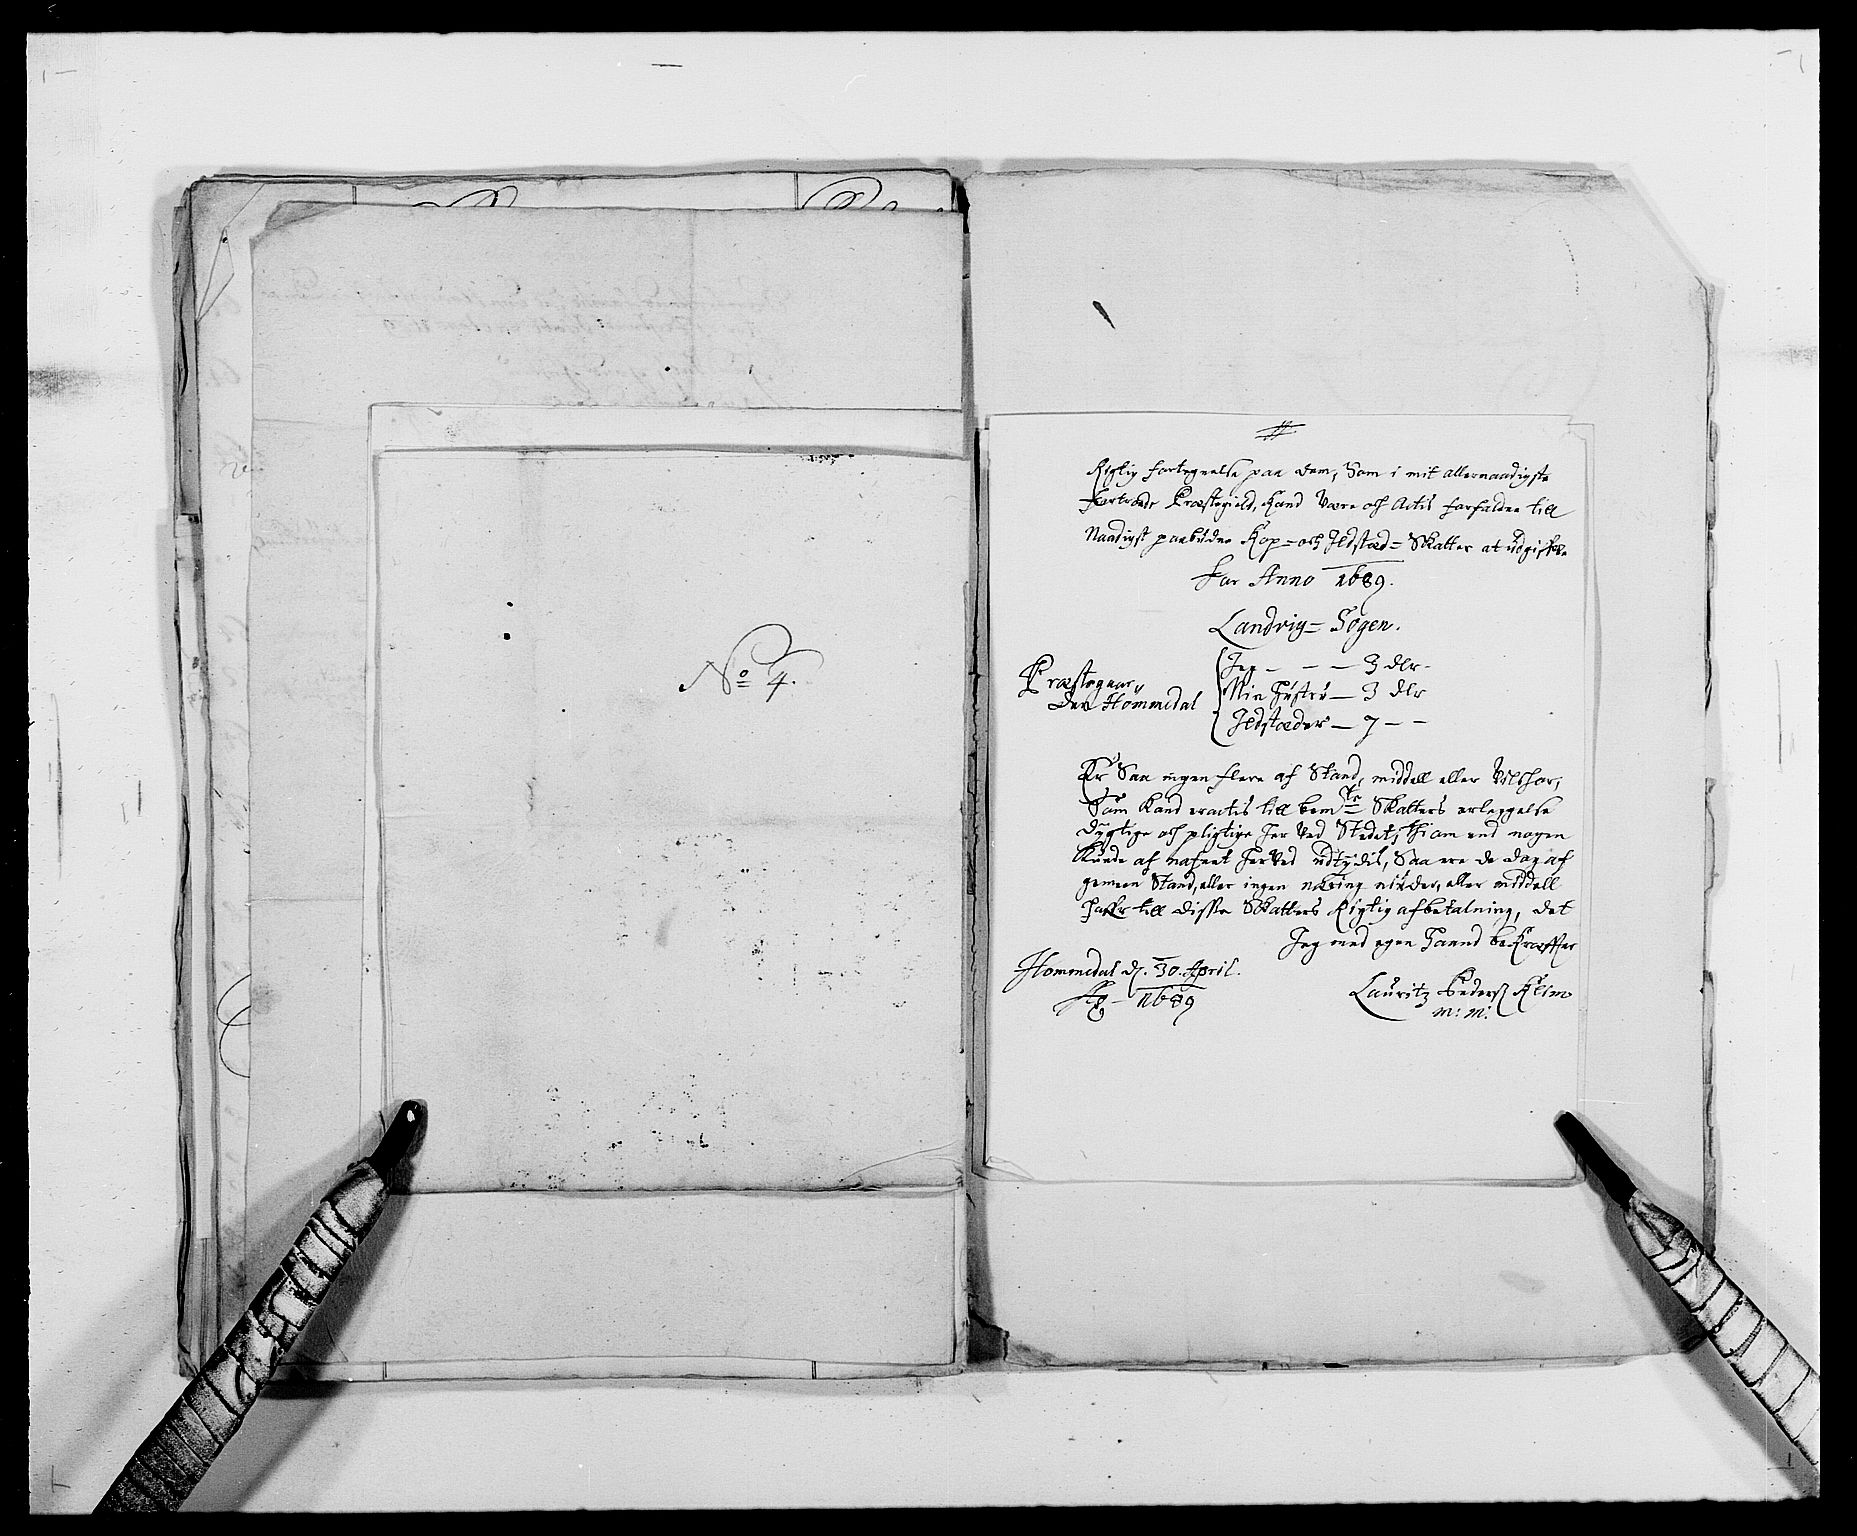 No 4.
Rigtig fortegnelse paa dem, Som i mit allernaadigste
Præstegield, Kand Være och Actis forfalden till
Naadigst paabudne Kop= och Ildsted= Skatter at udgifve
for Anno 1689.
Landvig= Sogen.
Præstegaar,
Hommedal
Jeg - - - 3 dlr.
Min Hustru — 3 dlr
Ildstæder — 7 - -
Er Saa ingen flere af Stand, middell eller Vilchor,
Som Kand eractis till bemte Skatters erleggelse
dygtige och pligtige her Ved Stedet, thi om end nogen
Kunde af nafnet her Ved udtydis, Saa ere de dog af
gemeen Stand, eller ingen næring, eller middell
hafver till disse Skatters Rigtig afbetalning, det
Jeg med egen Haand bekræffter
Hommedal d. 30. April.
Ao - 1689
Lauritz Peders
m: m: